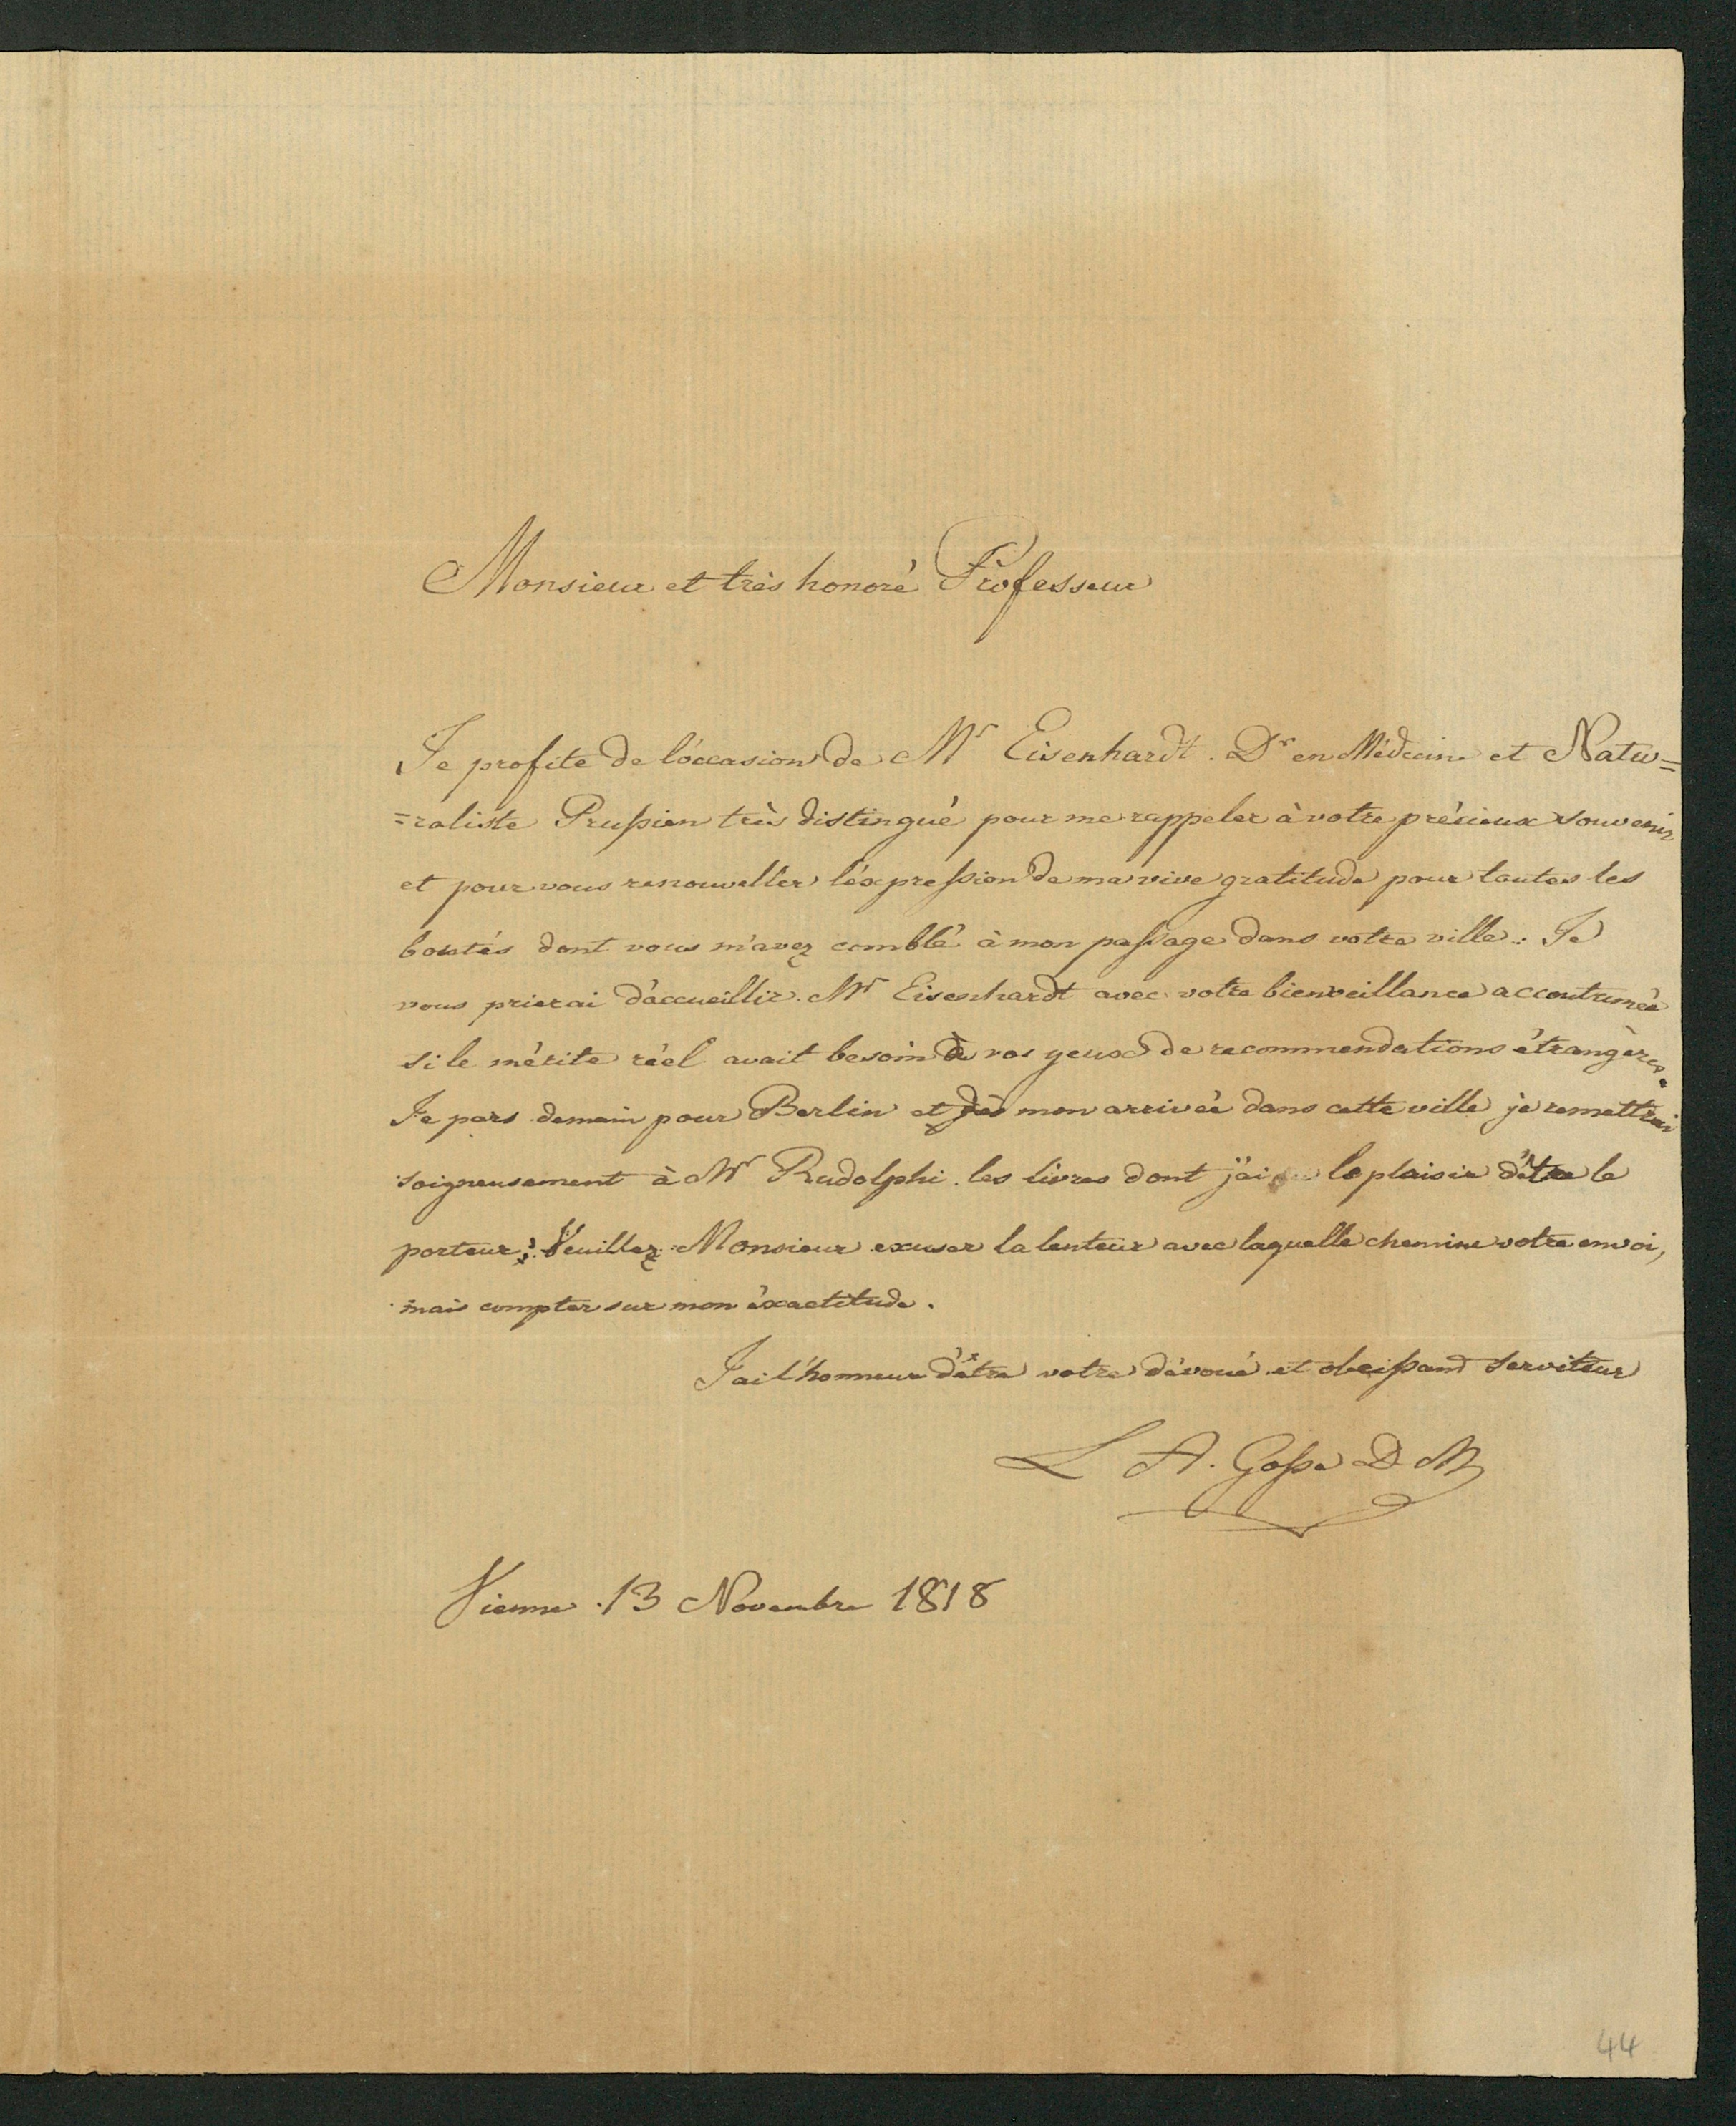 Monsieur et très honoré Professeur
Je profite de l'occasion de Mr Eisenhardt. Dr en Médecine et Natu=
=raliste Prussien très distingué pour me rappeler à votre précieux souvenir
et pour vous renouveller l'éxpression de ma vive gratitude pour toutes les
bontés dont vous m'avez comblé à mon passage dans votre ville. Je
vous prierai d'accueillir Mr Eisenhardt avec votre bienveillance accoutumée
si le mérite réel avait besoin à vos yeux de recommendations étrangères.
Je pars demain pour Berlin et dès mon arrivée dans cette ville je remettrai
soigneusement à Mr Rudolphi les livres dont j'ai le plaisir d'être le
porteur; Veuillez Monsieur excuser la lenteur avec laquelle chemine votre envoi,
mais compter sur mon éxactitude.
J'ai l'honneur d'être votre dévoué et obeissand serviteur
L A. Gosse D M
Vienne. 13 Novembre 1818
44